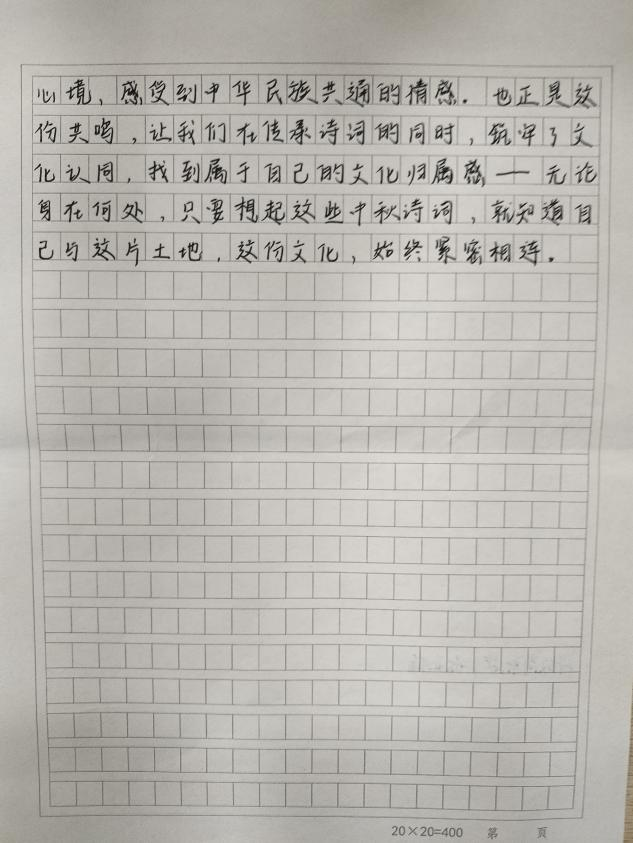 心境，感受到中华民族共通的情感。也正是这
份共鸣，让我们在传承诗词的同时，筑牢了文
化认同，找到属于自己的文化归属感——无论
身在何处，只要想起这些中秋诗词，就知道自
己与这片土地，这份文化，始终紧密相连。
20×20=400 第 页